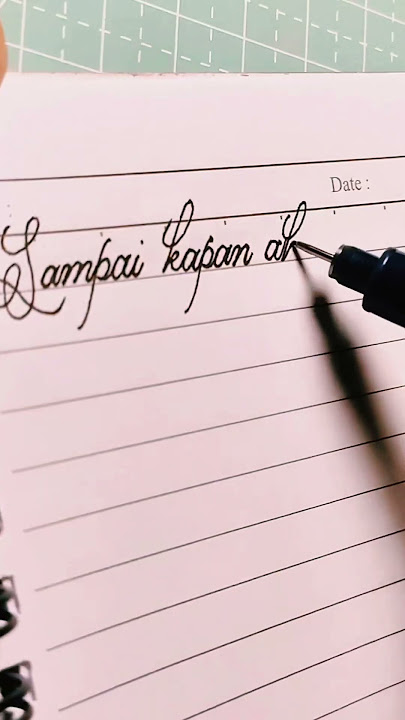 Date :
Sampai kapan ak